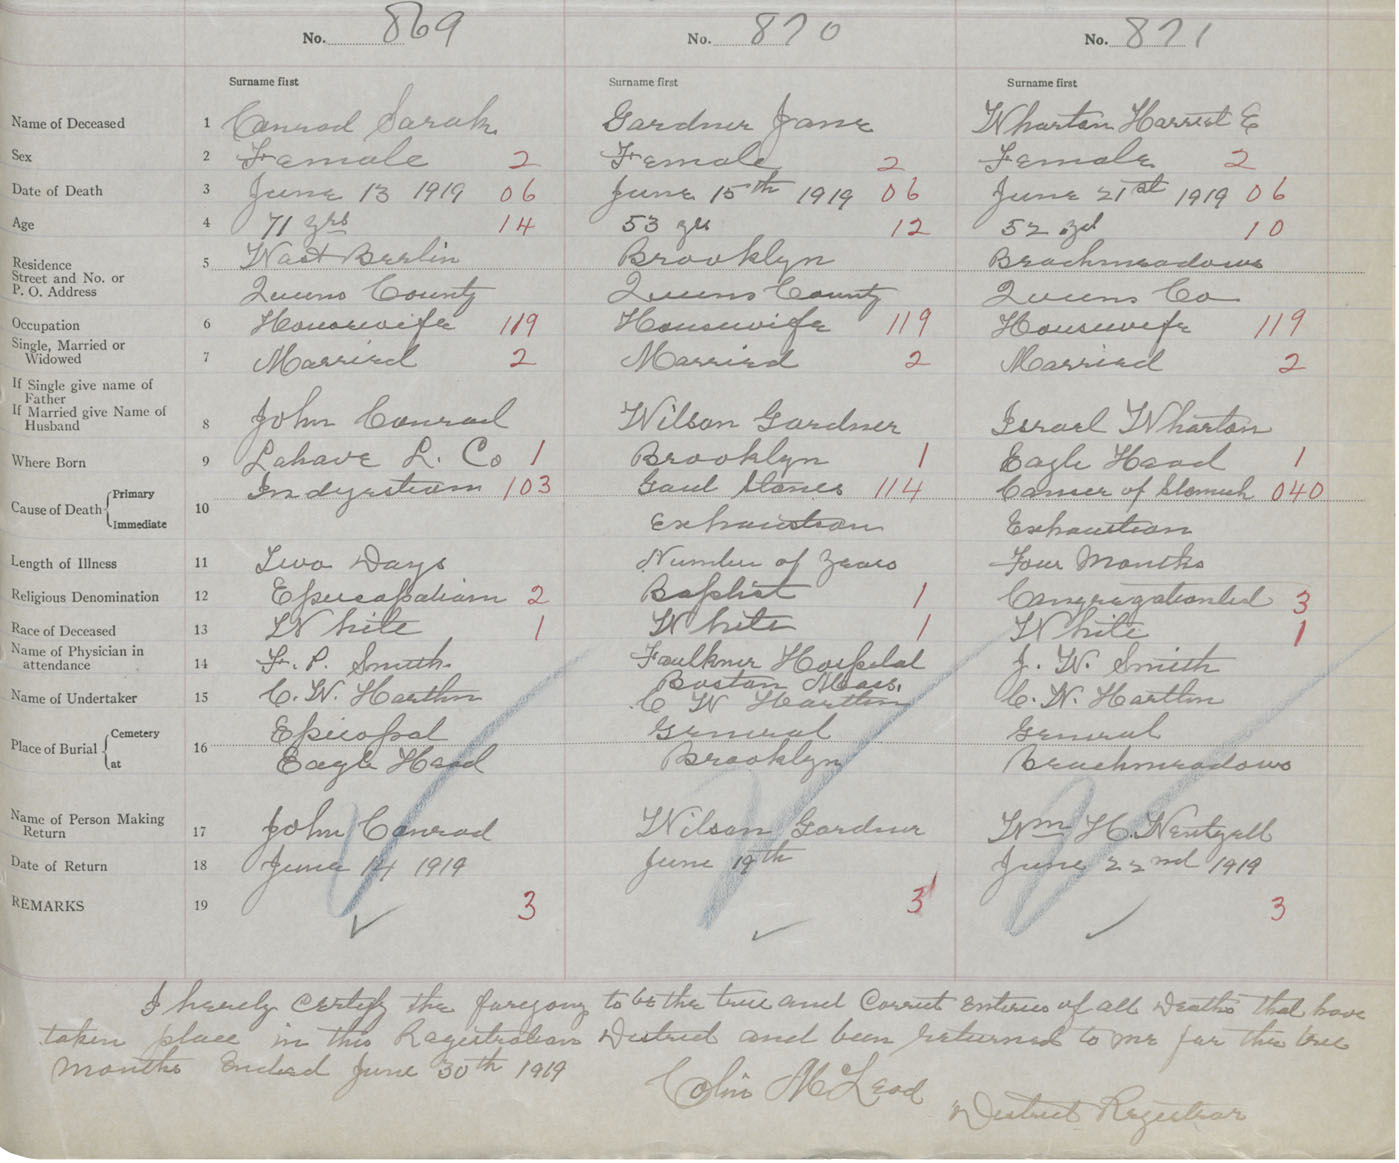 No. 869 No. 870 No. 871
Surname first Surname first Surname first
Name of Deceased 1 Conrad Sarah Gardner Jane Wharton Harriet E
Sex 2 Female 2 Female 2 Female 2
Date of Death 3 June 13 1919 06 June 15th 1919 06 June 21st 1919 06
Age 4 71 yrs 14 53 yrs 12 52 yrs 10
Residence 5 West Berlin Brooklyn Beachmeadows
Street and No. or
P. O. Address Queens County Queens County Queens Co
Occupation 6 Housewife 119 Housewife 119 Housewife 119
Single, Married or
Widowed 7 Married 2 Married 2 Married 2
If Single give name of
Father
If Married give Name of
Husband 8 John Conrad Wilson Gardner Israel Wharton
Where Born 9 Lahave L. Co 1 Brooklyn 1 Eagle Head 1
Cause of Death Primary 10 Indigestion 103 Gaul Stones 114 Cancer of Stomach 040
Immediate Exhaustion Exhaustion
Length of Illness 11 Two Days Number of Years Four Months
Religious Denomination 12 Episcopalian 2 Baptist 1 3
Race of Deceased 13 White 1 White 1 White 1
Name of Physician in
attendance 14 F. P. Smith Faulkner Hospital J. W. Smith
Boston Mass.
Name of Undertaker 15 C. W. C W C. W.
Place of Burial Cemetery 16 Episcopal General General
at Eagle Head Brooklyn Beachmeadows
Name of Person Making
Return 17 John Conrad Wilson Gardner Wm H. Wentzell
Date of Return 18 June 14 1919 June 19th June 22nd 1919
REMARKS 19 3 3 3
I hereby certify the foregoing to be the true and Correct Entries of all Deaths that have
taken place in this Registration District and been returned to me for the
months Ended June 30th 1919
Colin McLeod
District Registrar